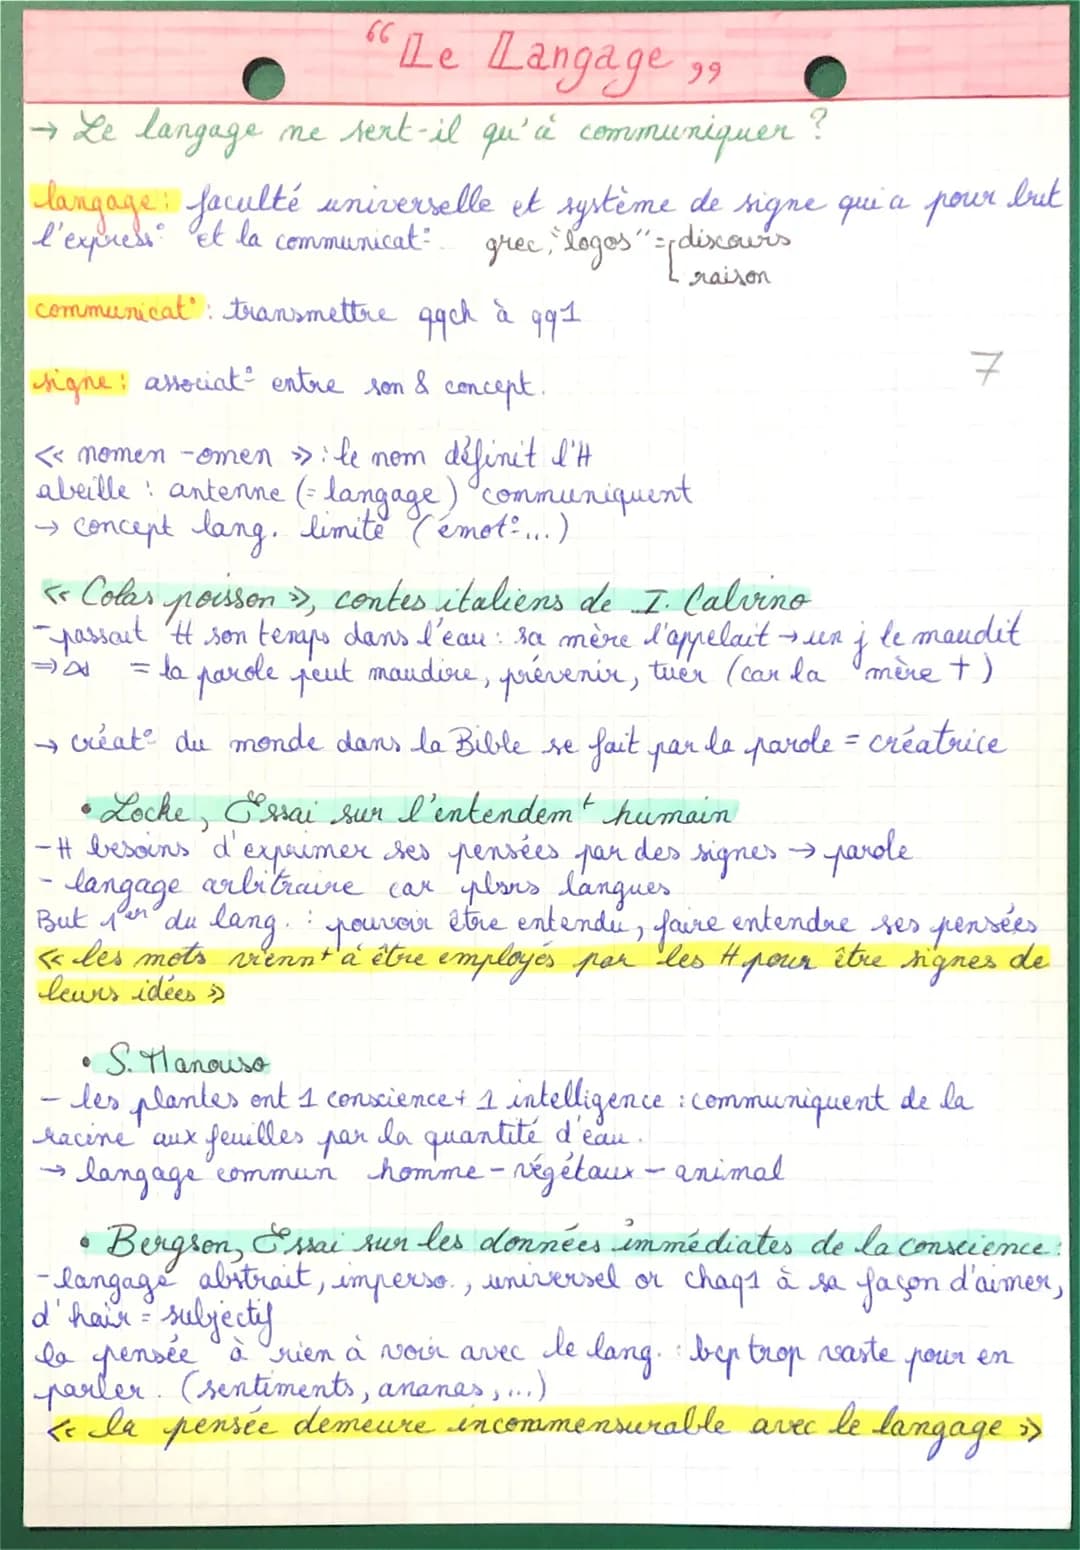 “Le Langage”
→ Le langage ne sert-il qu'à communiquer ?
langage : faculté universelle et système de signe qui a pour but
l'express° et la communicat°. grec, "logos" = discours
raison
communicat° : transmettre qqch à qq1
7
signe : associat° entre son & concept.
<< nomen - omen >> : le nom définit l'H
abeille : antenne (= langage) communiquent
→ concept lang. limité (émot°...)
<< Colas poisson >>, contes italiens de I. Calvino
- passait tt son temps dans l'eau : sa mère l'appelait → un j le maudit
⇒ = la parole peut maudire, prévenir, tuer (car la mère †)
→ créat° du monde dans la Bible se fait par la parole = créatrice
• Locke, Essai sur l'entendemt humain
- H besoins d'exprimer ses pensées par des signes → parole
- langage arbitraire car plsrs langues
But 1er du lang. : pouvoir être entendu, faire entendre ses pensées
<< les mots viennt à être employés par les H pour être signes de
leurs idées >>
• S. Manouso
- les plantes ont 1 conscience + 1 intelligence : communiquent de la
racine aux feuilles par la quantité d'eau.
→ langage commun homme - végétaux - animal
• Bergson, Essai sur les données immédiates de la conscience :
- langage abstrait, imperso., universel or chaq1 à sa façon d'aimer,
d'haïr = subjectif
la pensée à rien à voir avec le lang. : bcp trop vaste pour en
parler. (sentiments, ananas, ...)
<< la pensée demeure incommensurable avec le langage >>